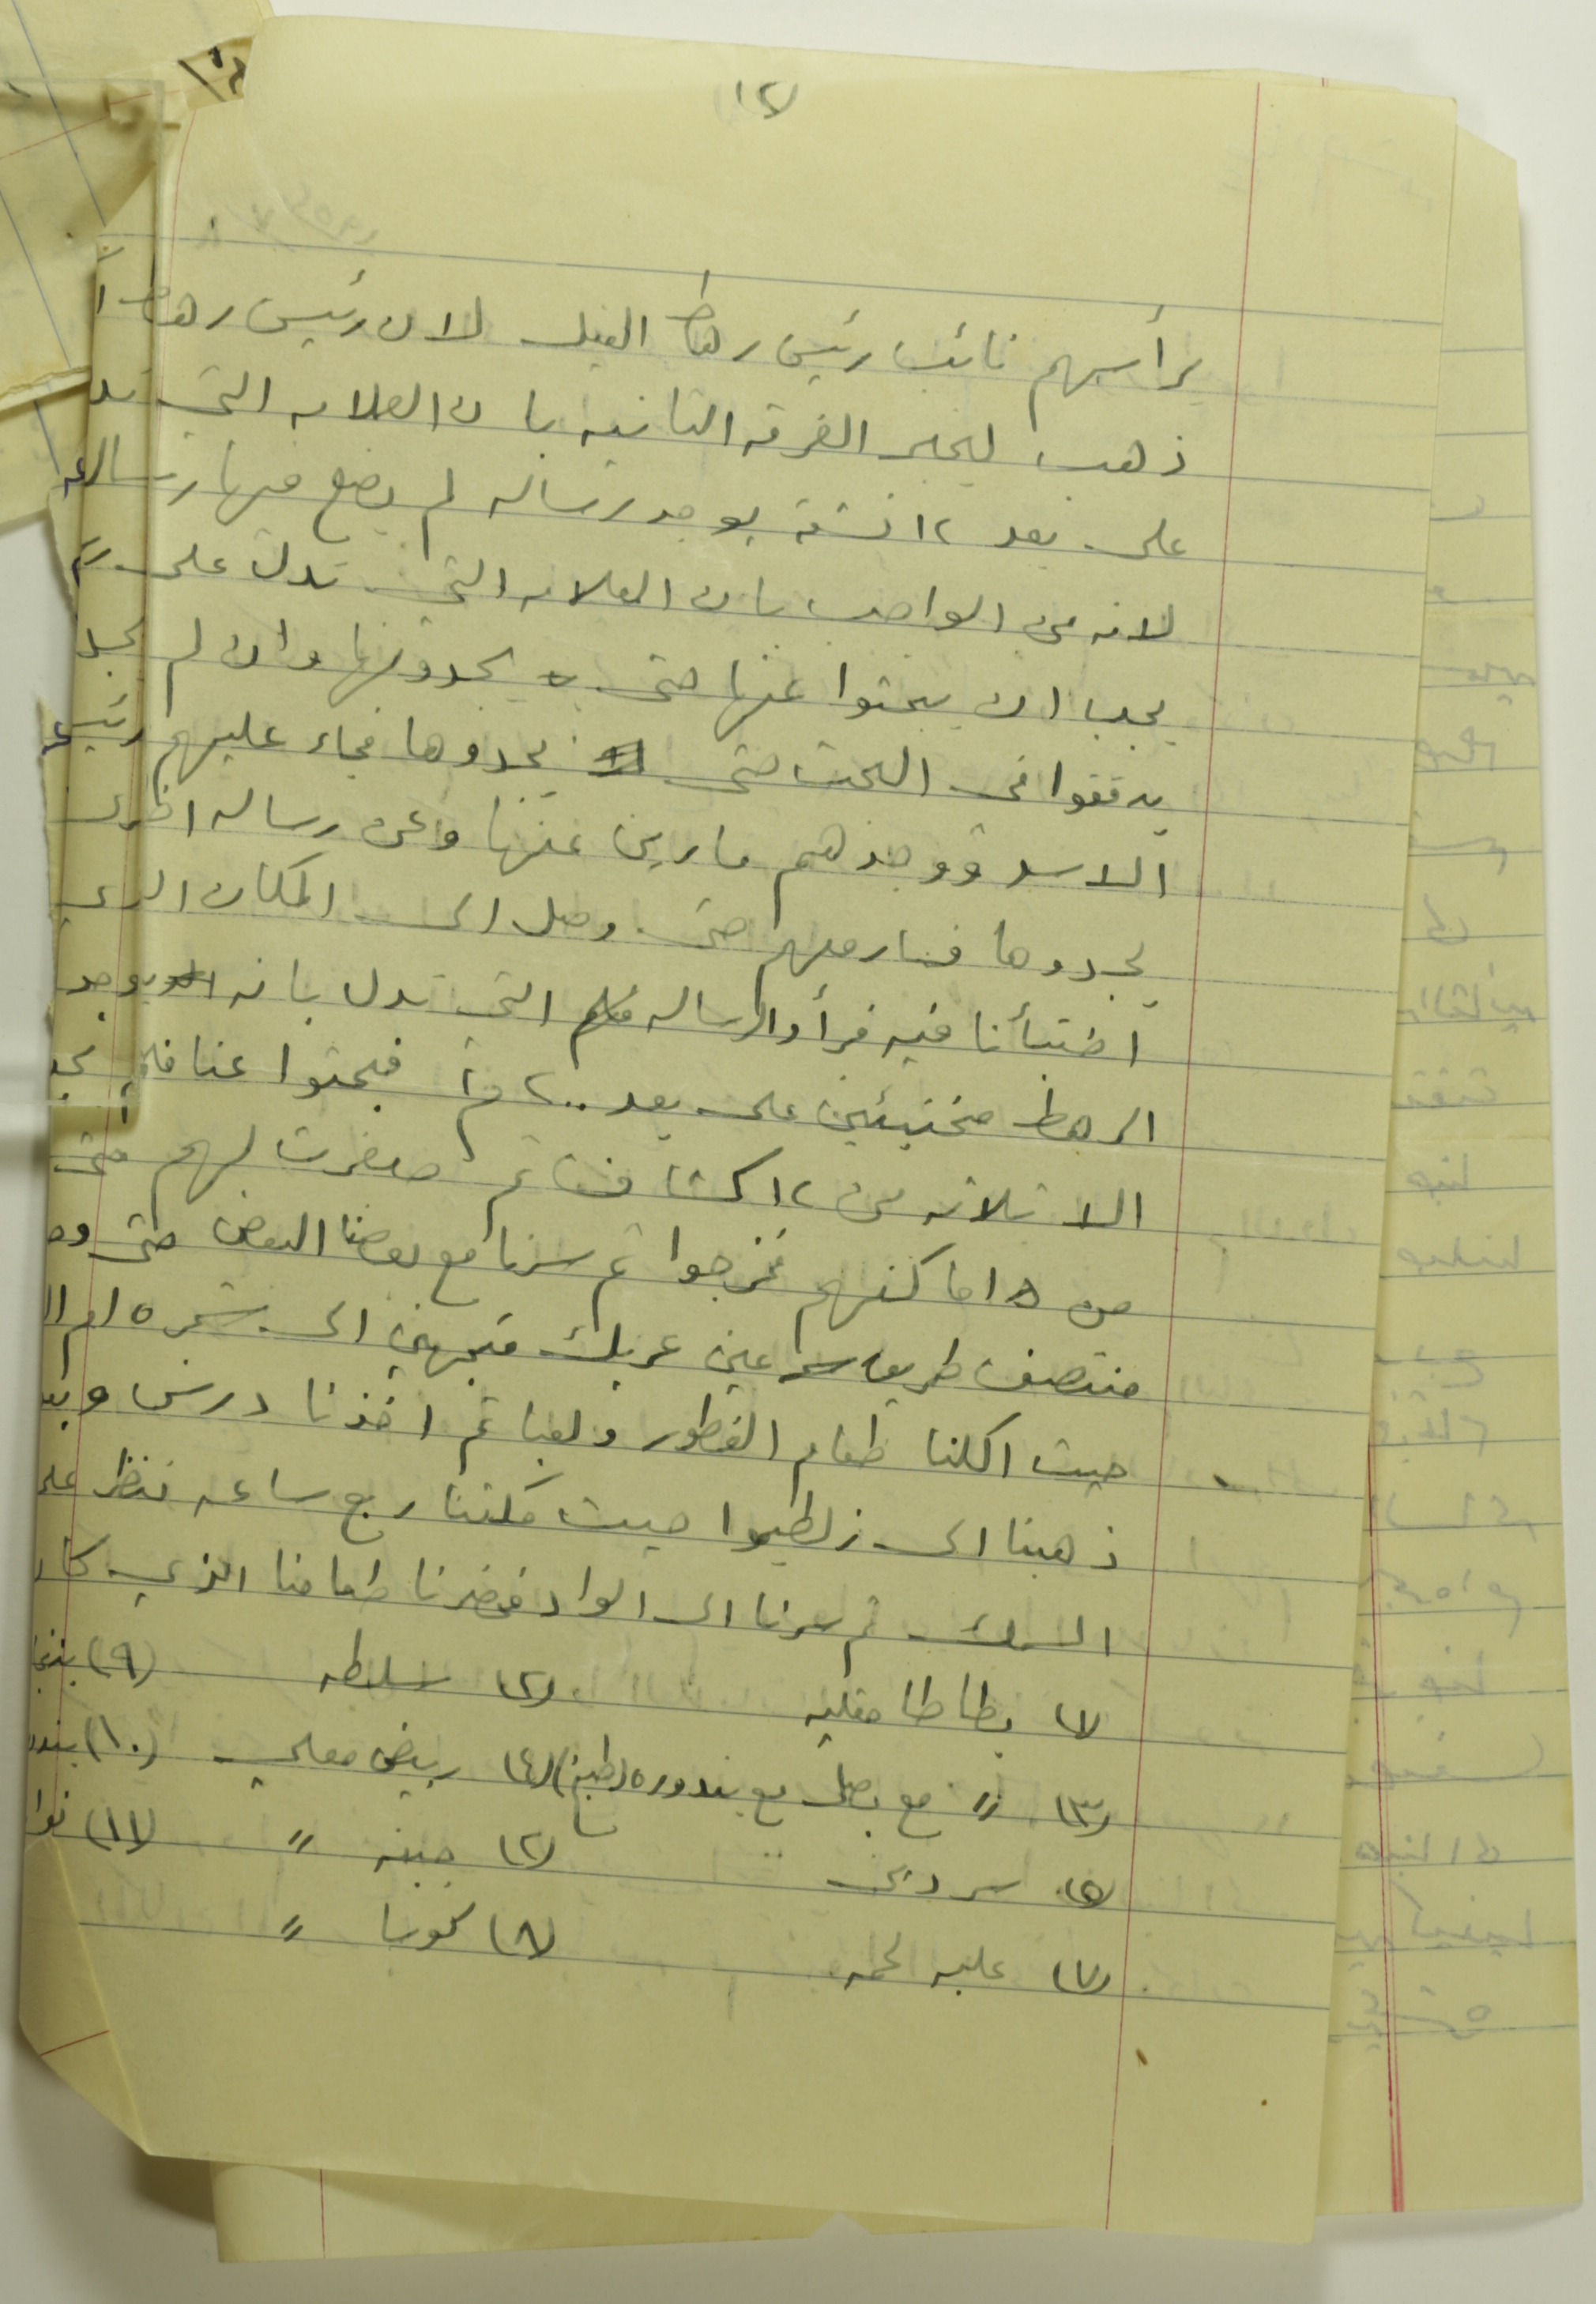 ١٢
يرأسهم نائب رئيس رهط الفيل لان رئيس رهط ا
ذهب ليخبر الفرقه الثانيه بان العلامه التي تد
على بعد ١٢ قدم يوجد رساله لم يضع فيها رساله
لانه من الواجب بان العلامه التي تدل على
يجب ان يبحثوا عنها حتى يجدونها وان لم يجد
يدققوا في البحث حتى يجدوها فجاء عليهم رئيس
الاسد فوجدهم مارين عنها وعن رساله اخرى
يجدوها فسار معهم حتى وصل الى المكان الذي
اختبأنا فيه فرأوا الرساله التي تدل بانه يوجد
الرهط مختبئين على بعد ٢٠٠ م فبحثوا عنا فلم يجد
الا ثلاثه من ١٢ كشاف ثم صفرت لهم حتى
من اماكنهم فخرجوا ثم سرنا مع بعضنا البعض حتى وص
منتصف طريق عين عريك متجهين الى شجره ام ال
حيث اكلنا طعام الفطور ولعبنا ثم اخذنا درس وبعد
ذهبنا الى حيث مكثنا ربع ساعه ننظر على
السمك ثم سرنا الى الواد فحضرنا طعامنا الذي كان
(١) بطاطا مقليه (٢) سلطه (٩) بتنجا
(٣) " مع بصل مع بندوره (طبخ) (٤) بيض مقلي (١٠) بندو
(٥) سردين (٦) جبنه " (١١) فوا
(٧) علبه لحمه (٨) كوسا "